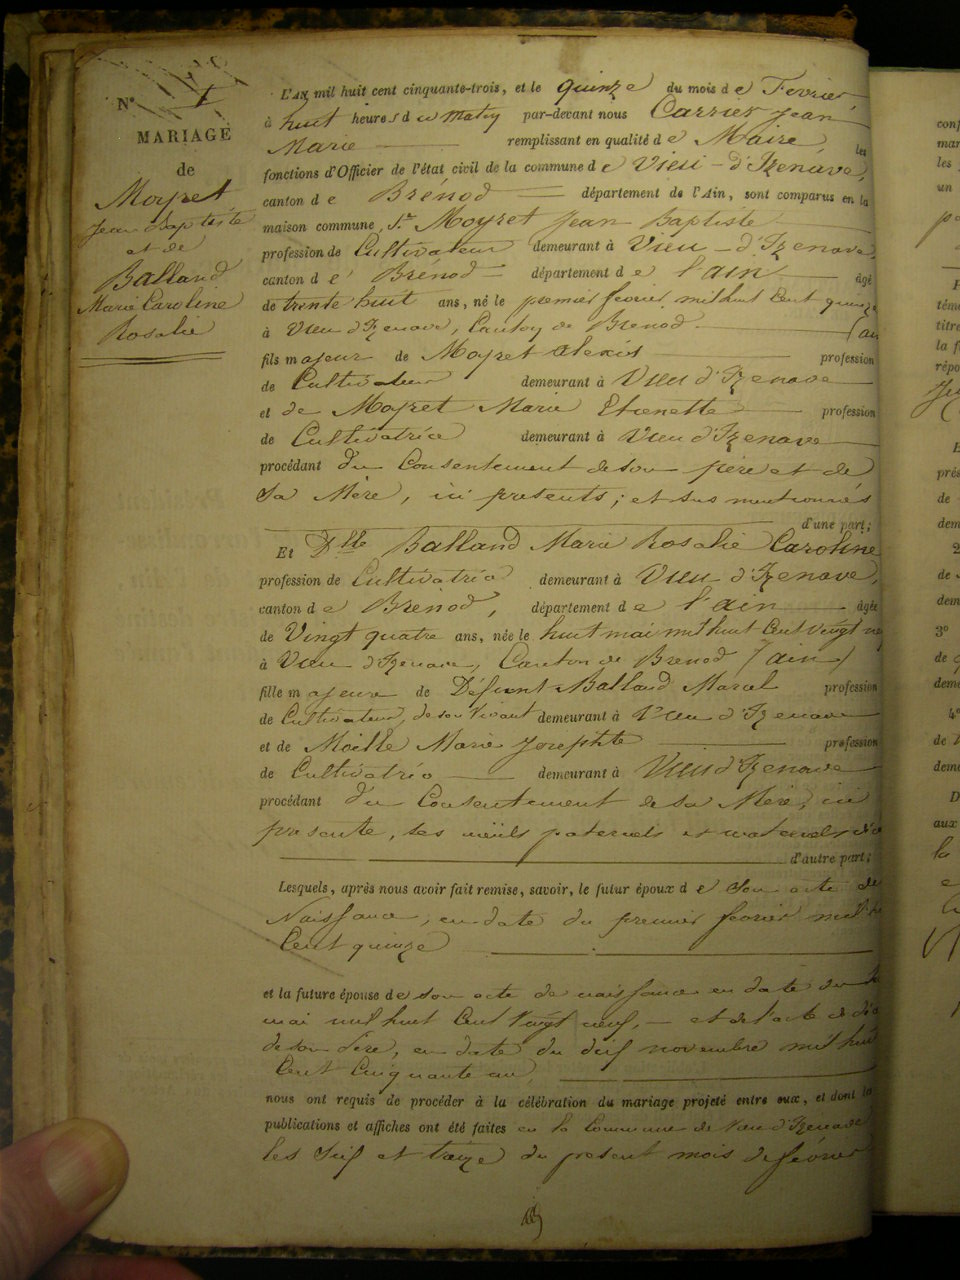 N° 1
MARIAGE
de
Moyret
Jean Baptiste
et de
Balland
Marie Caroline
Rosalie
L'AN mil huit cent cinquante-trois, et le quinze du mois de Fevrier,
à huit heures du matin par-devant nous Carrier Jean
Marie remplissant en qualité de Maire les
fonctions d'Officier de l'état civil de la commune de Vieu-d'Izenave,
canton de Brénod département de l'Ain, sont comparus en la
maison commune, Sr. Moyret Jean Baptiste
profession de Cultivateur demeurant à Vieu-d'Izenave,
canton de Brénod département de l'ain âgé
de trente huit ans, né le premier fevrier mil huit Cent quinze
à Vieu d'Izenave, Canton de Brenod (ain
fils majeur de Moyret alexis profession
de Cultivateur demeurant à Vieu d'Izenave
et de Moyret Marie Etienette profession
de Cultivatrice demeurant à Vieu d'Izenave
procédant du Consentement de son père et de
Sa Mère, ici presents; et sus mentionnés
d'une part;
Et Dlle Balland Marie Rosalie Caroline
profession de Cultivatrice demeurant à Vieu d'Izenave,
canton de Brénod, département de l'ain âgée
de Vingt quatre ans, née le huit mai mil huit Cent vingt
à Vieu d'Izenave, Canton de Brenod (ain)
fille majeure de Défunt Balland Marcel profession
de Cultivateur, de son Vivant demeurant à Vieu d'Izenave
et de Moille Marie Josephte profession
de Cultivatrice demeurant à Vieu d'Izenave
procédant du Consentement de sa Mère, ici
presente, ses aieuls paternels et maternels
d'autre part;
Lesquels, après nous avoir fait remise, savoir, le futur époux de Son acte de
Naissance, en date du premier fevrier mil
Cent quinze
et la future épouse de son acte de naissance en date du
mai mil huit Cent Vingt neuf, et de l'acte de
de son Père, en date du dix novembre mil huit
Cent Cinquante un,
nous ont requis de procéder à la célébration du mariage projeté entre eux, et dont les
publications et affiches ont été faites en la Commune de Vieu d'Izenave
les Six et treize du present mois de fevrier